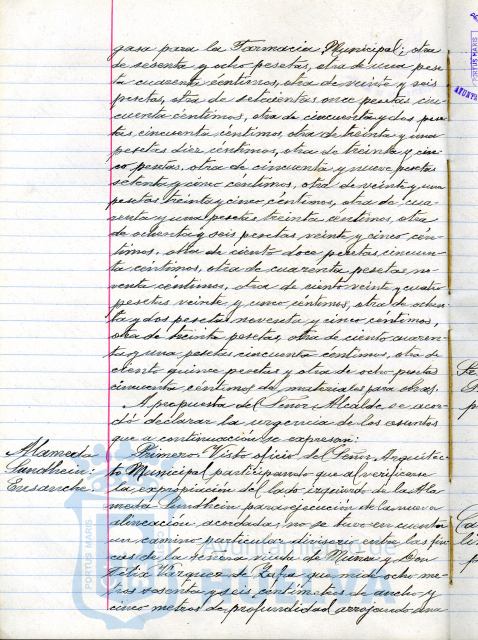 gasa para la Farmacia Municipal; otra
de sesenta y ocho pesetas, otra de una pese
ta cuarenta céntimos, otra de veinte y seis
pesetas, otra de setecientas once pesetas cin
cuenta céntimos, otra de cincuenta y dos pese
tas cincuenta céntimos, otra de treinta y una
pesetas diez céntimos, otra de treinta y cin
co pesetas, otra de cincuenta y nueve pesetas
setenta y cinco céntimos, otra de veinte y una
pesetas treinta y cinco céntimos, otra de cua
renta y una pesetas treinta céntimos, otra
de ochenta y seis pesetas, veinte y cinco cén-
timos, otra de ciento doce pesetas cincuen-
ta céntimos, otra de cuarenta pesetas no-
venta céntimos, otra de ciento veinte y cuatro
pesetas veinte y cinco céntimos, otra de ochen
ta y dos pesetas noventa y cinco céntimos,
otra de treinta pesetas, otra de ciento cuaren
ta y una pesetas cincuenta céntimos, otra de
ciento quince pesetas y otra de ocho pesetas
cincuenta céntimos de materiales para obras.
A propuesta del Señor Alcalde se acor
dó declarar la urgencia de los asuntos
que a continuación se expresan:
Alameda Sundheim: Ensanche:
Primero: Visto oficio del Señor Arquitec-
to Municipal participando que al verificarse
la expropiación del lado izquierdo de la Ala
meda Sundheim para ejecución de la nueva
alineación acordada, no se tuvo en cuenta
un camino particular divisorio entre las fin
cas de la señora viuda de Muñoz y Don
Félix Vázquez de Zafra que mide ocho me
tros sesenta y seis centímetros de ancho y
cinco metros de profundidad arrojando una
PORTUS MARIS
Ayuntamiento de
HUELVA